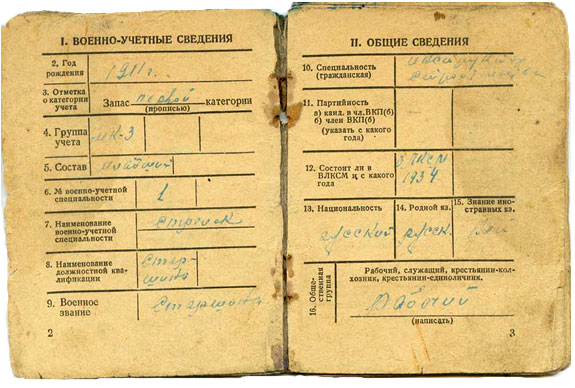 I. ВОЕННО-УЧЕТНЫЕ СВЕДЕНИЯ
2. Год
рождения
1911 г.
3. Отметка
о категории
учета
Запас первой категории
(прописью)
4. Группа
учета
МК-3
5. Состав
младший
6. № военно-учетной
специальности
1
7. Наименование
военно-учетной
специальности
Стрелок
8. Наименование
должностной ква-
лификации
Стар-
шина
9. Военное
звание
Старшина
2
II. ОБЩИЕ СВЕДЕНИЯ
10. Специальность
(гражданская)
11. Партийность
а) канд. в чл. ВКП(б)
б) член ВКП(б)
(указать с какого
года)
12. Состоит ли в
ВЛКСМ и с какого
года
ВЛКСМ
1934
13. Национальность
русский
14. Родной яз.
русск.
15. Знание ино-
странных яз.
16. Обще-
ственная
группа
Рабочий, служащий, крестьянин-кол-
хозник, крестьянин-единоличник.
Рабочий
(написать)
3